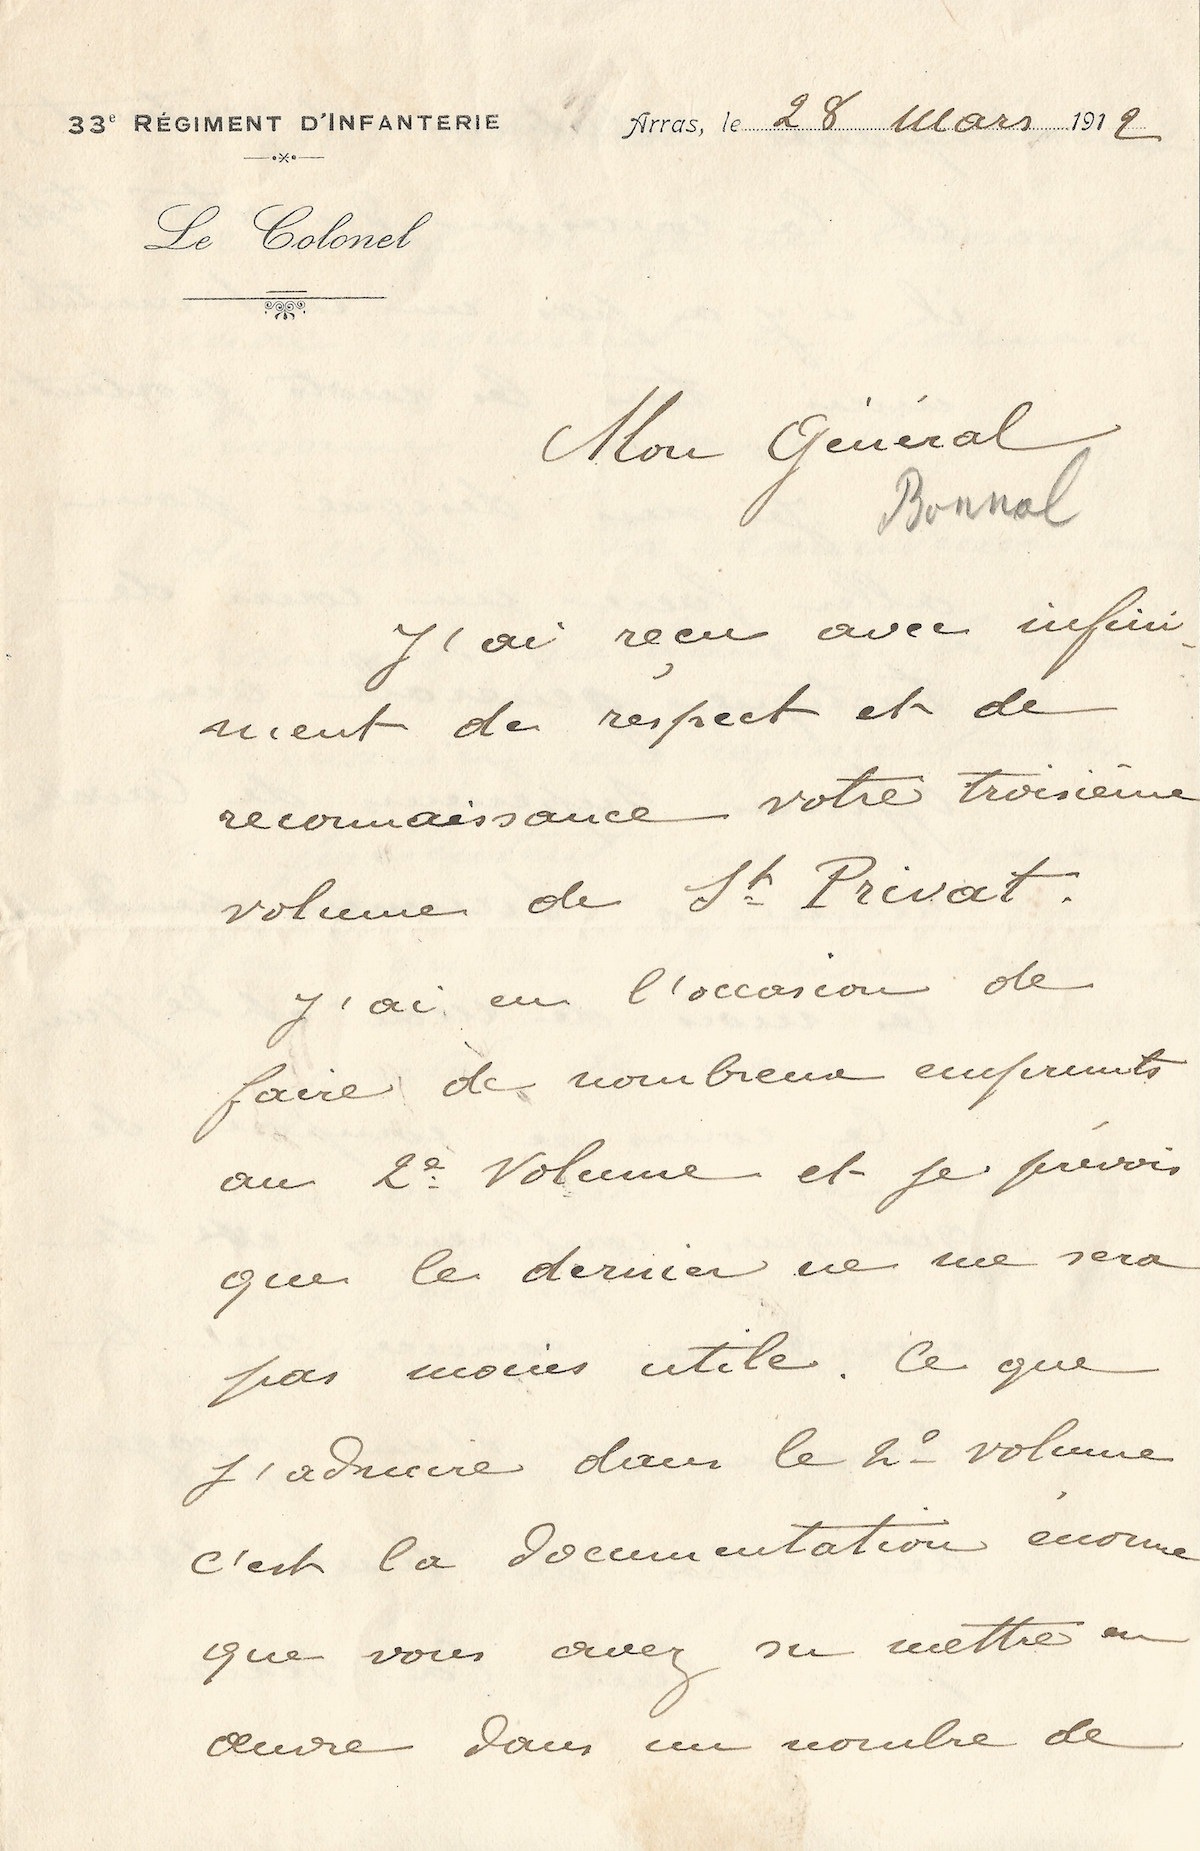 33e RÉGIMENT D'INFANTERIE
Arras, le 28 Mars 1912
Le Colonel
Mon Général
Bonnal
J'ai reçu avec infini-
ment de respect et de
reconnaissance votre troisième
volume de St Privat.
J'ai eu l'occasion de
faire de nombreux emprunts
au 2e Volume et je prévois
que le dernier ne me sera
pas moins utile. Ce que
j'admire dans le 2e volume
c'est la documentation énorme
que vous avez su mettre en
œuvre dans un nombre de